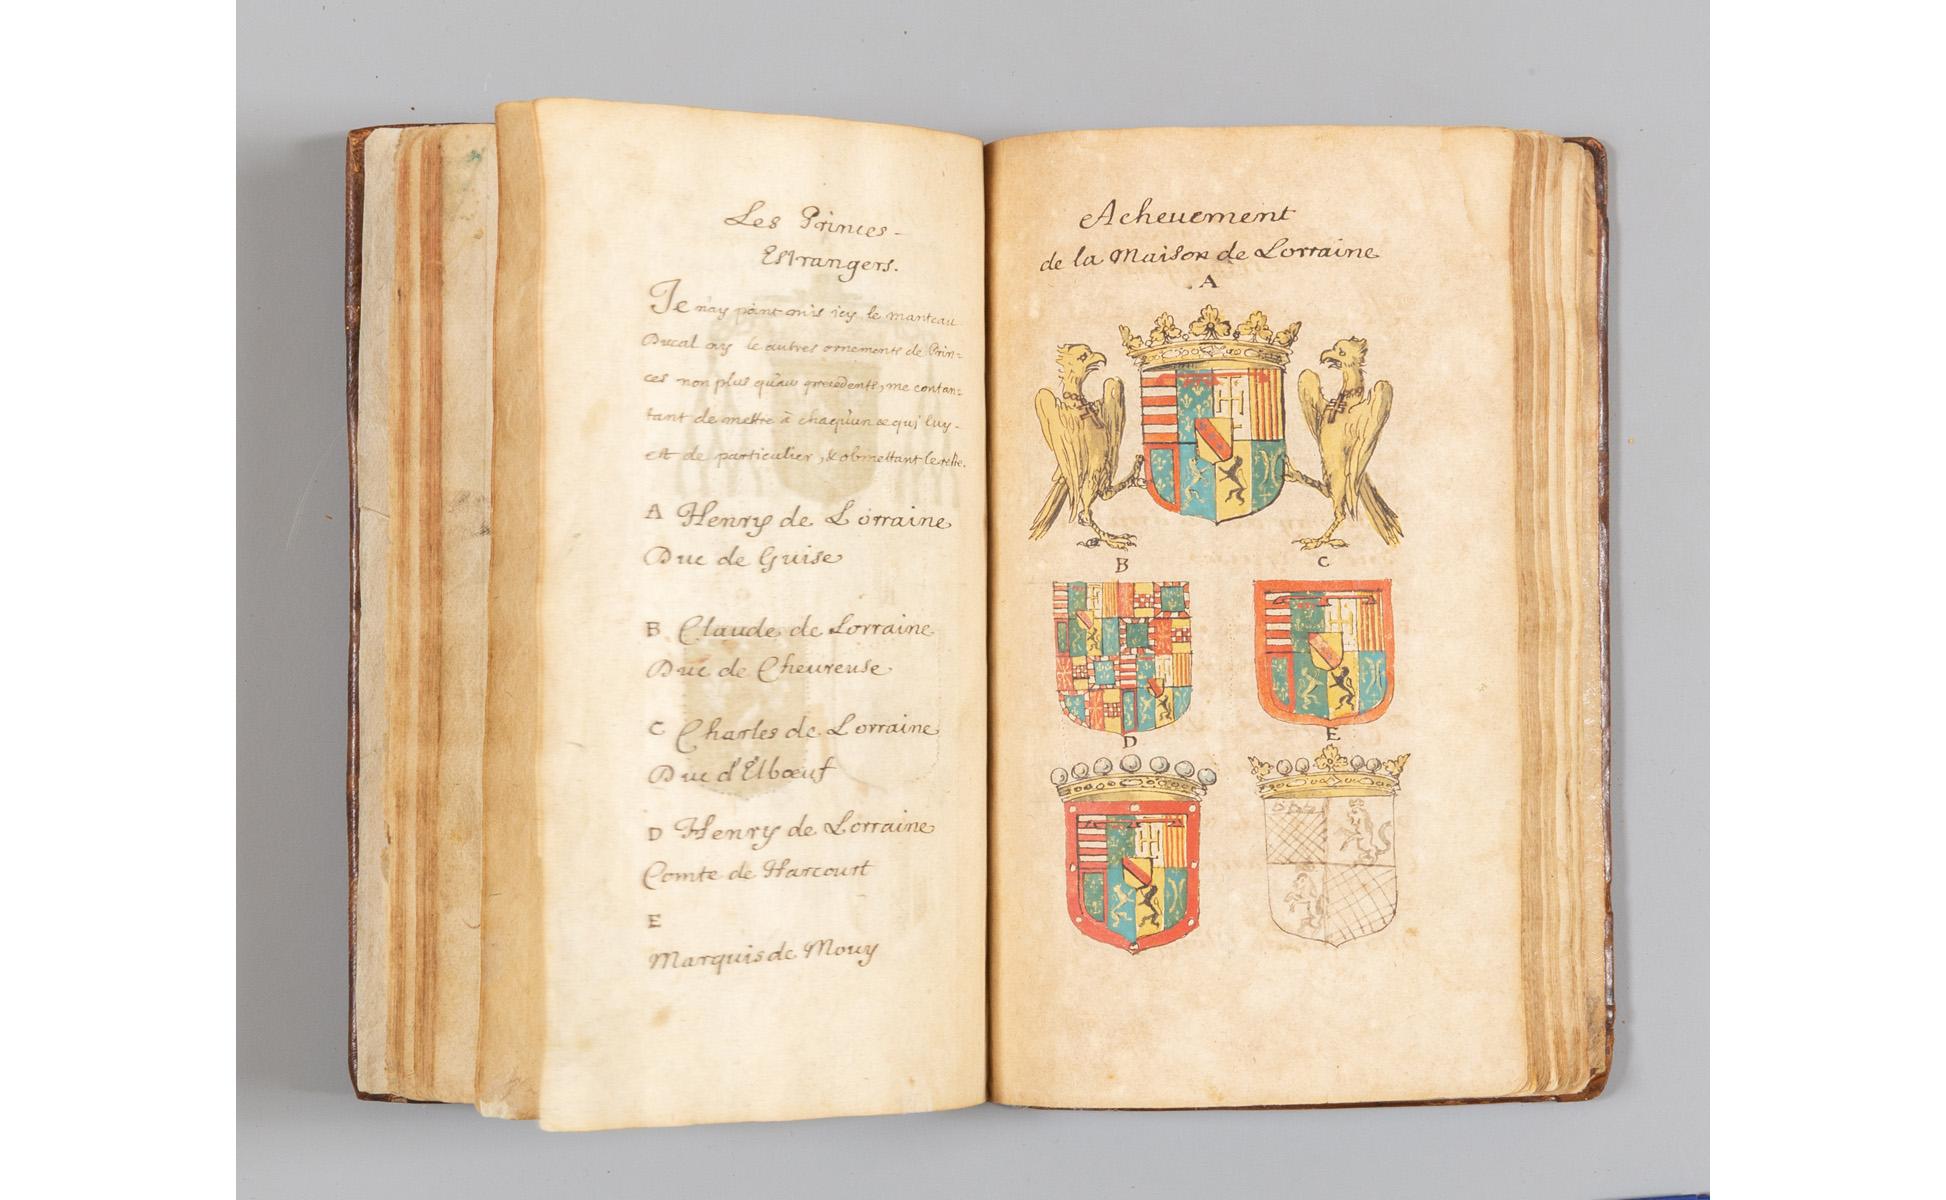 Les Princes-
Estrangers.
Je n'ay point mis icy le manteau
Ducal ny le autres ornements de Prin=
ces non plus qu'aux precedents, me contan=
tant de mettre à chaqu'un ce qui luy-
est de particulier, & obmettant le reste.
A Henry de Lorraine
Duc de Guise
B Claude de Lorraine
Duc de Cheureuse
C Charles de Lorraine
Duc d'Elbœuf
D Henry de Lorraine
Comte de Harcourt
E
Marquis de Mouy
Acheuement
de la Maison de Lorraine
A
B C
D E